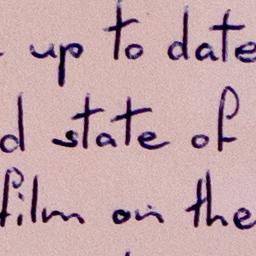 up to date
d state of
film on the